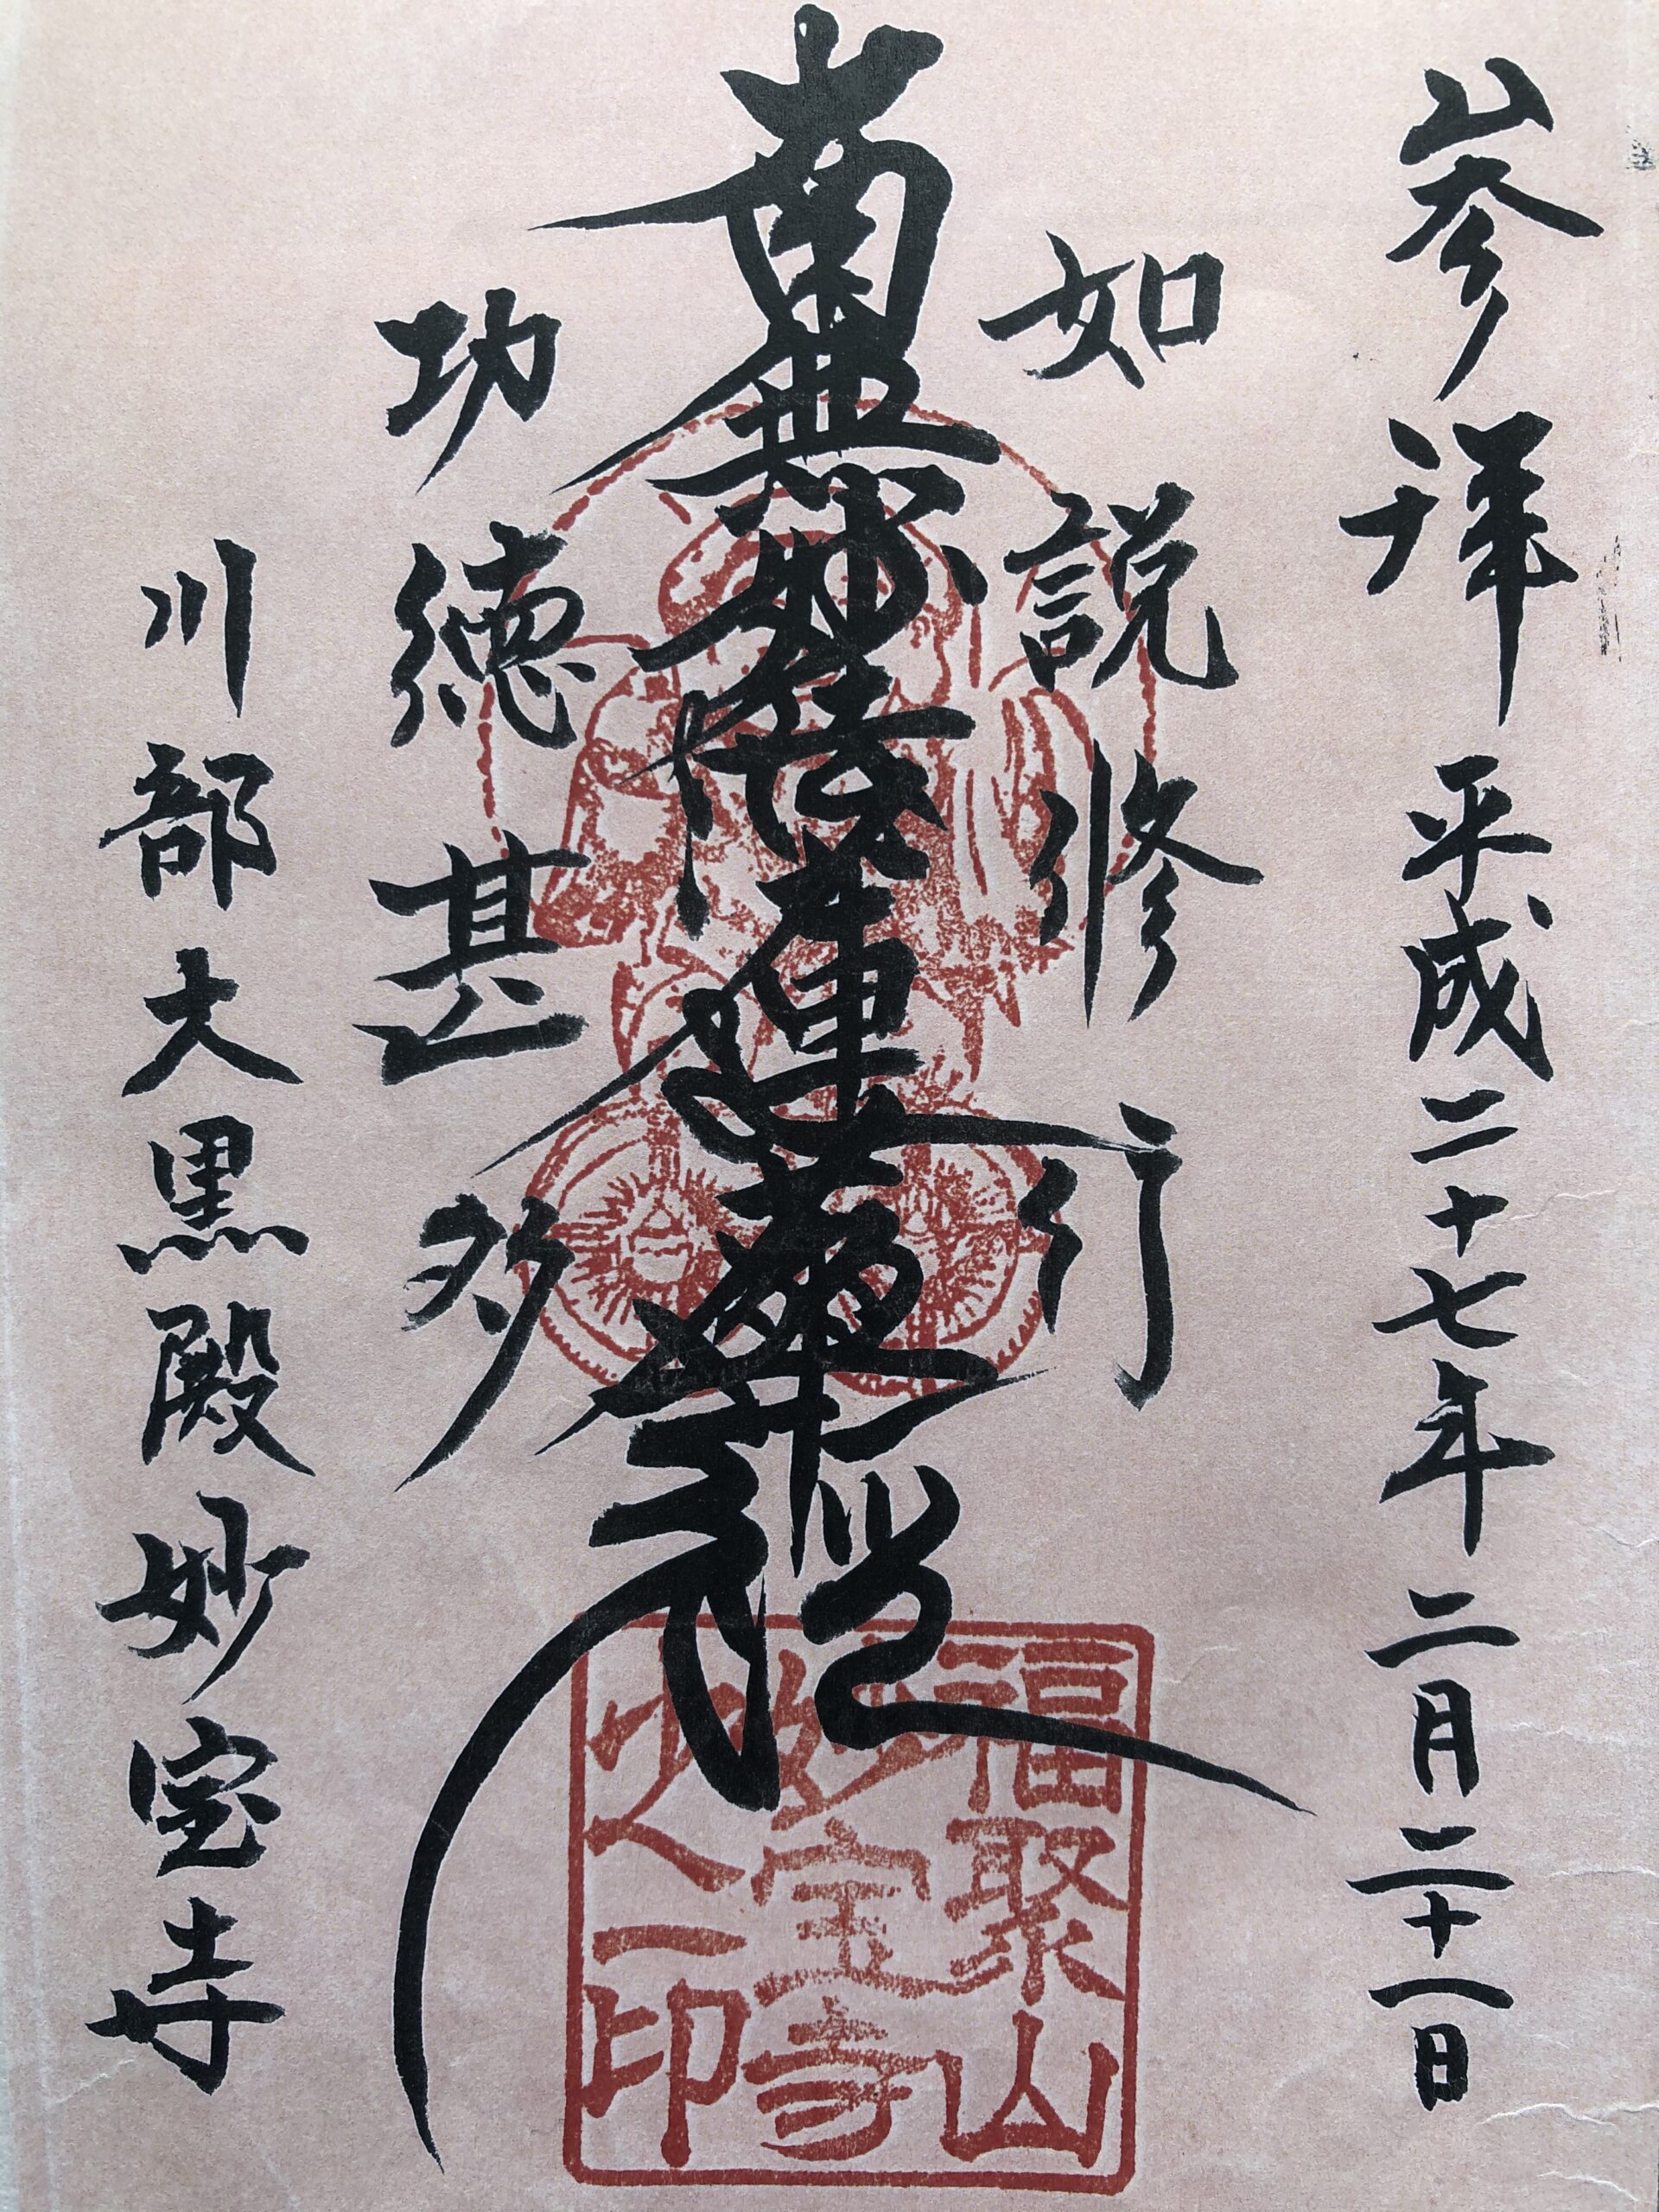 参拝 平成二十七年 二月二十一日
如説修行
南無妙法蓮華経
功徳甚多
川部大黒殿妙宝寺
福聚山
妙宝寺
之印